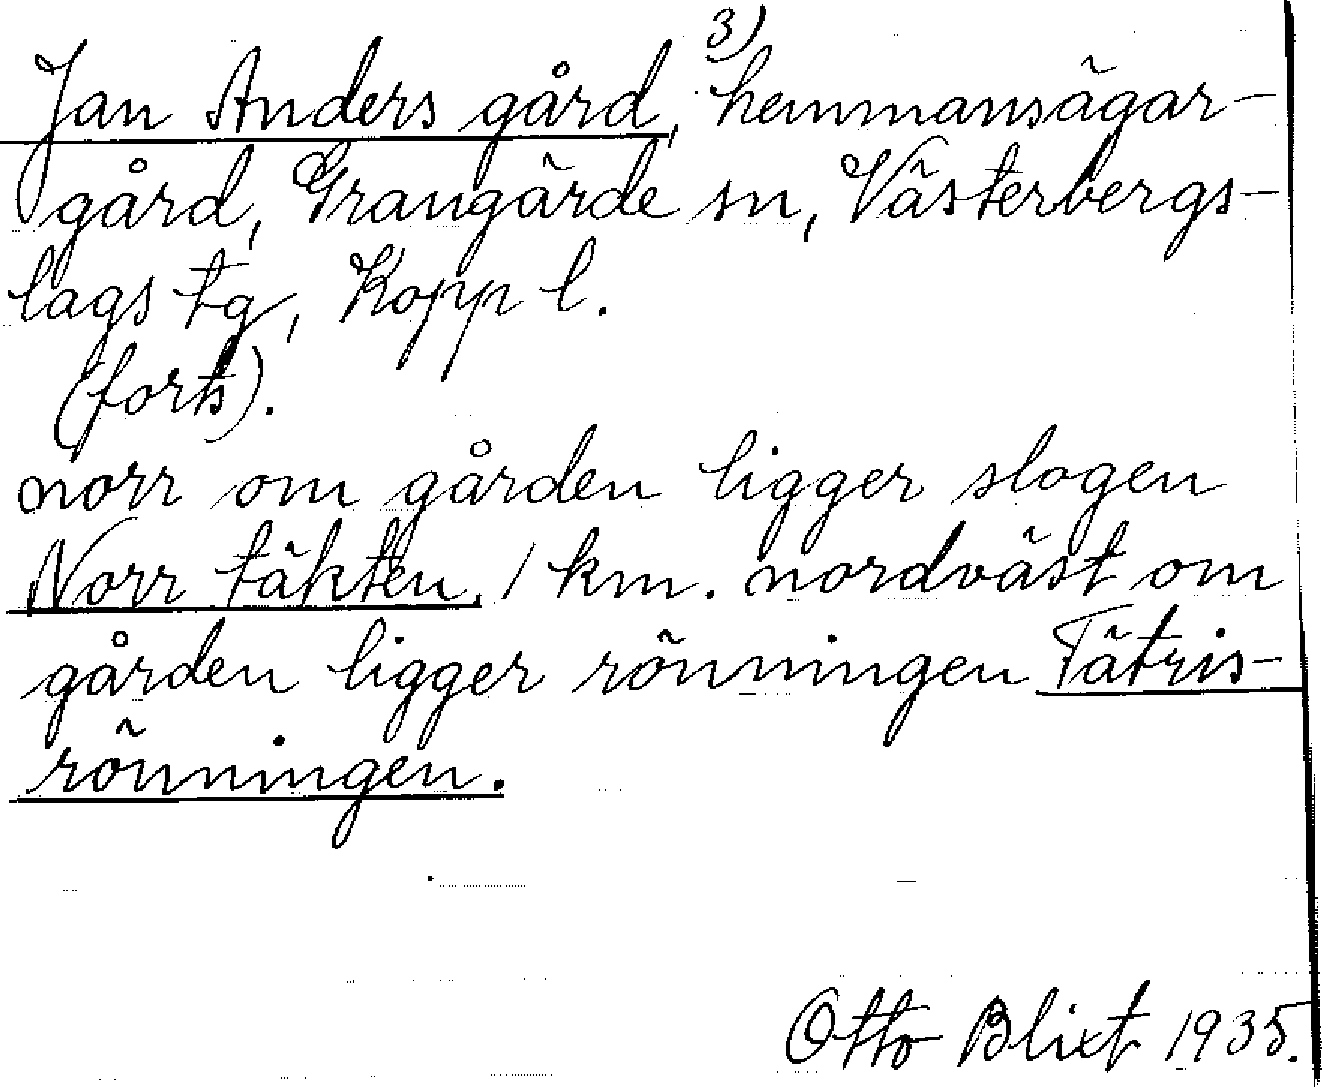 3)
Jan Anders gård, hemmansägar-
gård, Grangärde sn, Västerbergs-
lags tg, Kopp l.
(forts).
norr om gården ligger slogen
Norr täkten, 1 km. nordväst om
gården ligger rönningen Tätris-
rönningen.
Otto Blixt 1935.